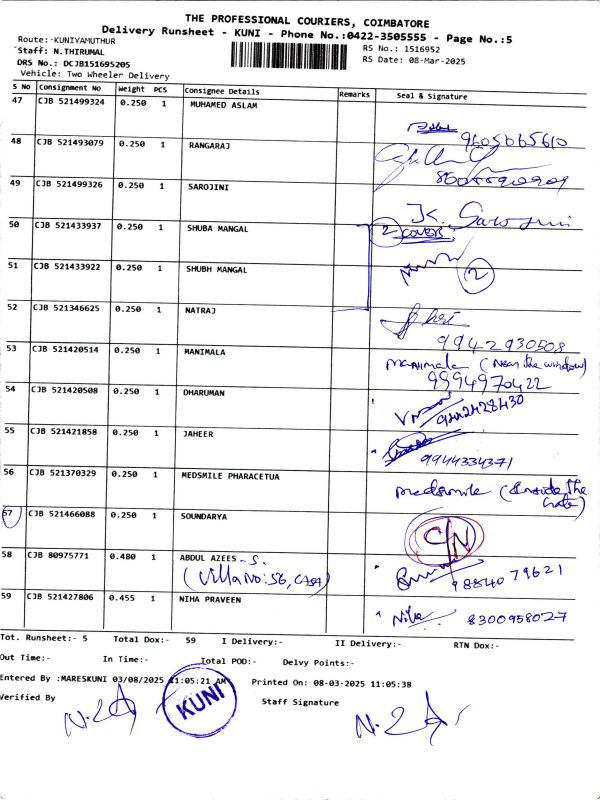 THE PROFESSIONAL COURIERS, COIMBATORE
Delivery Runsheet - KUNI - Phone No.:0422-3505555 - Page No.:5
Route:-KUNIYAMUTHUR RS No.: 1516952
Staff: N.THIRUMAL RS Date: 08-Mar-2025
DRS No.: DCJB151695205
Vehicle: Two Wheeler Delivery
S No Consignment No Weight PCS Consignee Details Remarks Seal & Signature
47 CJB 521499324 0.250 1 MUHAMED ASLAM
48 CJB 521493079 0.250 1 RANGARAJ
49 CJB 521499326 0.250 1 SAROJINI
K. Sarojini
50 CJB 521433937 0.250 1 SHUBA MANGAL 2 COVER
51 CJB 521433922 0.250 1 SHUBH MANGAL 2
52 CJB 521346625 0.250 1 NATRAJ
9942930508
53 CJB 521420514 0.250 1 MANIMALA Manimala (Near the window)
9994970422
54 CJB 521420508 0.250 1 DHARUMAN
9442428430
55 CJB 521421858 0.250 1 JAHEER
9944334371
56 CJB 521370329 0.250 1 MEDSMILE PHARACETUA Medsmile (Inside The Gate)
57 CJB 521466088 0.250 1 SOUNDARYA C/N
58 CJB 80975771 0.480 1 ABDUL AZEES -S.
(Villa No: 56, CASA) 98840 79621
59 CJB 521427806 0.455 1 NIHA PRAVEEN Niha 8300958027
Tot. Runsheet:- 5 Total Dox:- 59 I Delivery:- II Delivery:- RTN Dox:-
Out Time:- In Time:- Total POD:- Delvy Points:-
Entered By :MARESKUNI 03/08/2025 11:05:21 AM Printed On: 08-03-2025 11:05:38
Verified By KUNI Staff Signature